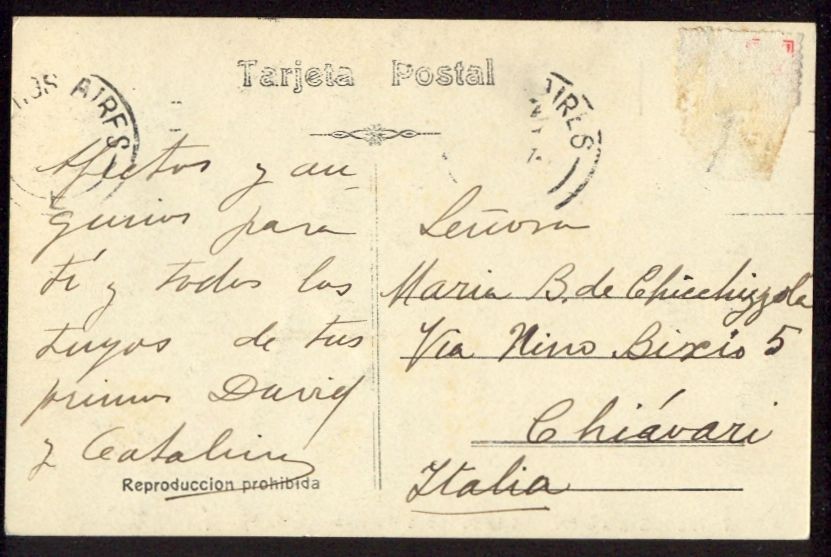 Tarjeta Postal
AIRES
AIRES
Afectos y au-
gurios para
tí y todos los
tuyos de tus
primos David
y Catalina
Reproduccion prohibida
Señora
Maria B. de Chicchizzola
Via Nino Bixio 5
Chiávari
Italia